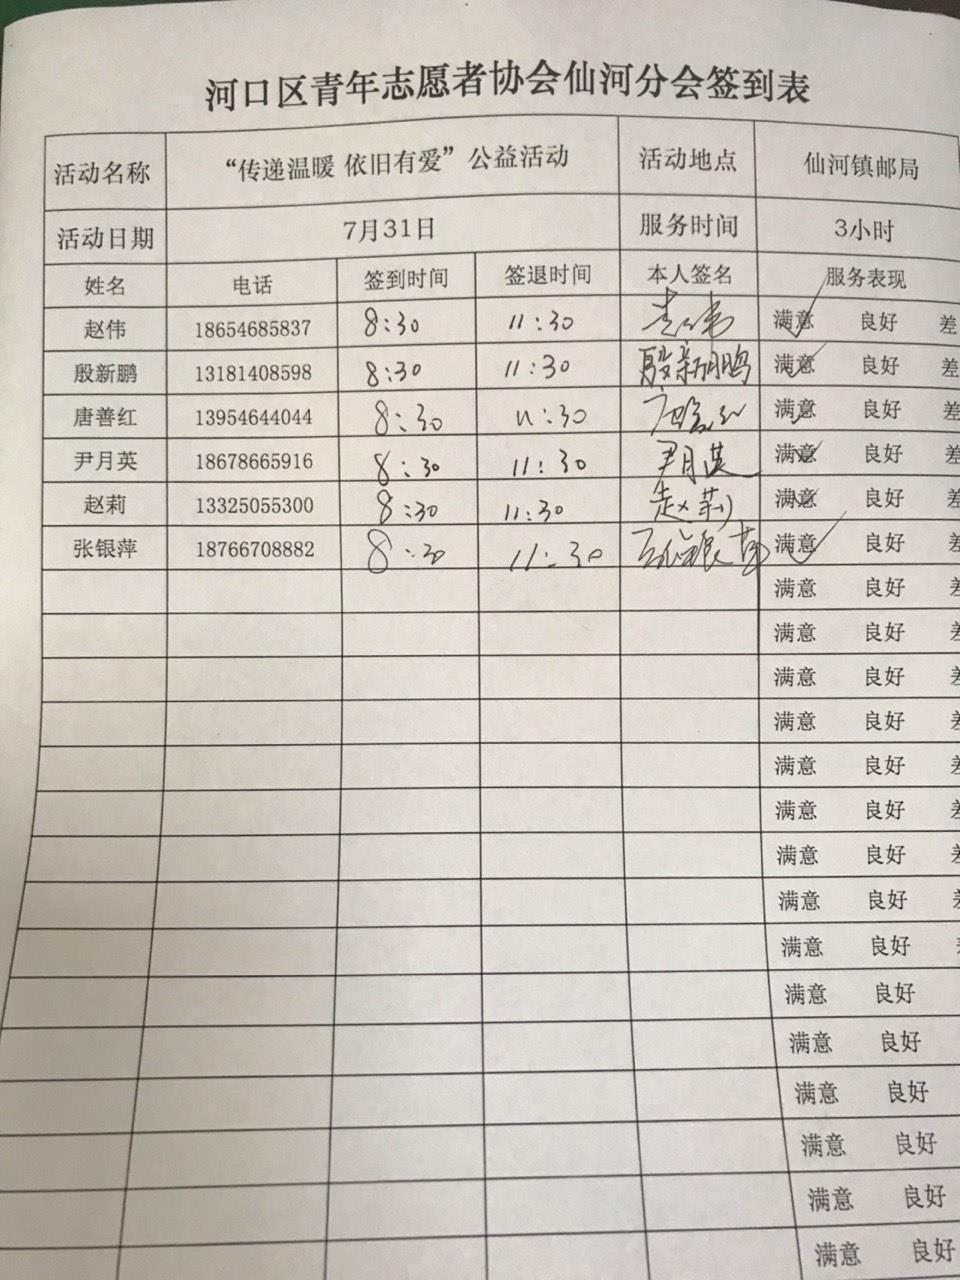 河口区青年志愿者协会仙河分会签到表
活动名称 “传递温暖 依旧有爱”公益活动 活动地点 仙河镇邮局
活动日期 7月31日 服务时间 3小时
姓名 电话 签到时间 签退时间 本人签名 服务表现
赵伟 18654685837 8:30 11:30 满意 良好 差
殷新鹏 13181408598 8:30 11:30 殷新鹏 满意 良好 差
唐善红 13954644044 8:30 11:30 唐善红 满意 良好 差
尹月英 18678665916 8:30 11:30 尹月英 满意 良好 差
赵莉 13325055300 8:30 11:30 赵莉 满意 良好 差
张银萍 18766708882 8:30 11:30 张银萍 满意 良好 差
满意 良好 差
满意 良好 差
满意 良好 差
满意 良好 差
满意 良好 差
满意 良好 差
满意 良好 差
满意 良好 差
满意 良好
满意 良好
满意 良好
满意 良好
满意 良好
满意 良好
满意 良好